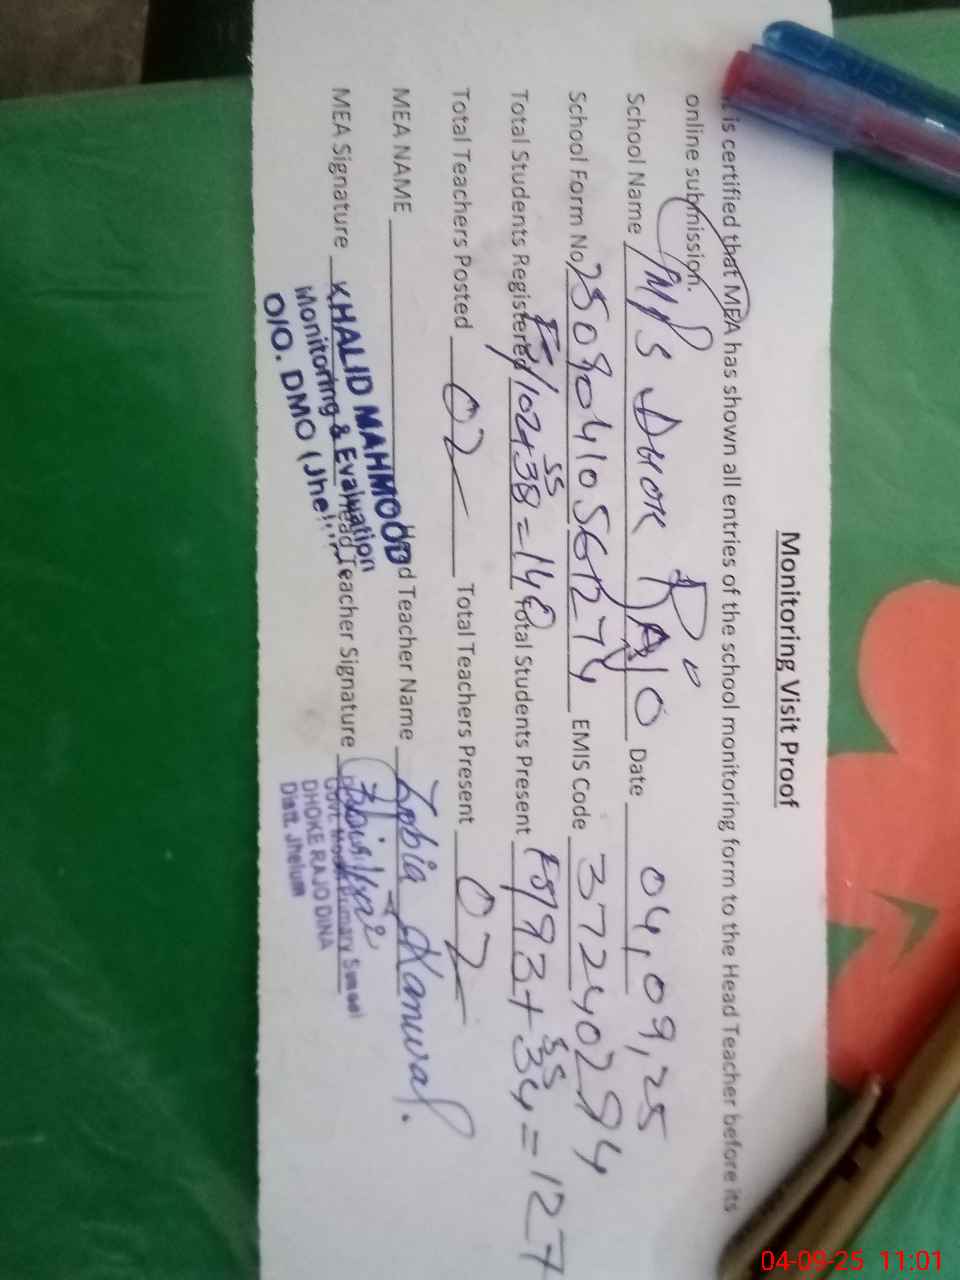 Monitoring Visit Proof
is certified that MEA has shown all entries of the school monitoring form to the Head Teacher before its
online submission.
School Name MPS Dhok RAJO Date 04,09,25
School Form No. EMIS Code 37240294
Total Students Registered FS/102+38 SS =140 Total Students Present FS/93+34 SS =127
Total Teachers Posted 02 Total Teachers Present 02
MEA NAME Head Teacher Name Zobia Kanwal.
MEA Signature Head Teacher Signature
KHALID MAHMOOD
Monitoring & Evaluation
O/O. DMO (Jhe
Govt. Model Primary School
DHOKE RAJO DINA
Distt. Jhelum
04-09-25 11:01